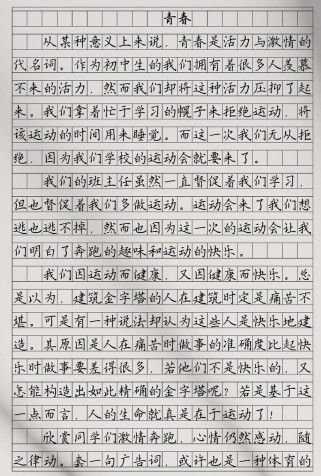 青春
从某种意义上来说，青春是活力与激情的
代名词。作为初中生的我们拥有着很多人羡慕
不来的活力，然而我们却将这种活力压抑了起
来。我们拿着忙于学习的幌子来拒绝运动，将
该运动的时间用来睡觉。而这一次我们无从拒
绝，因为我们学校的运动会就要来了。
我们的班主任虽然一直督促着我们学习，
但也督促着我们多做运动。运动会来了我们想
逃也逃不掉，然而也因为这一次的运动会让我
们明白了奔跑的趣味和运动的快乐。
我们因运动而健康，又因健康而快乐。总
是以为，建筑金字塔的人在建筑时定是痛苦不
堪。可是有一种说法却认为这些人是快乐地建
造。其原因是人在痛苦时做事的准确度比起快
乐时做事要差得很多，若他们不是快乐的，又
怎能构造出如此精确的金字塔呢？若是基于这
一点而言，人的生命就真是在于运动了！
欣赏同学们激情奔跑，心情仍然感动，随
之律动。套一句广告词，或许也是一种体育的